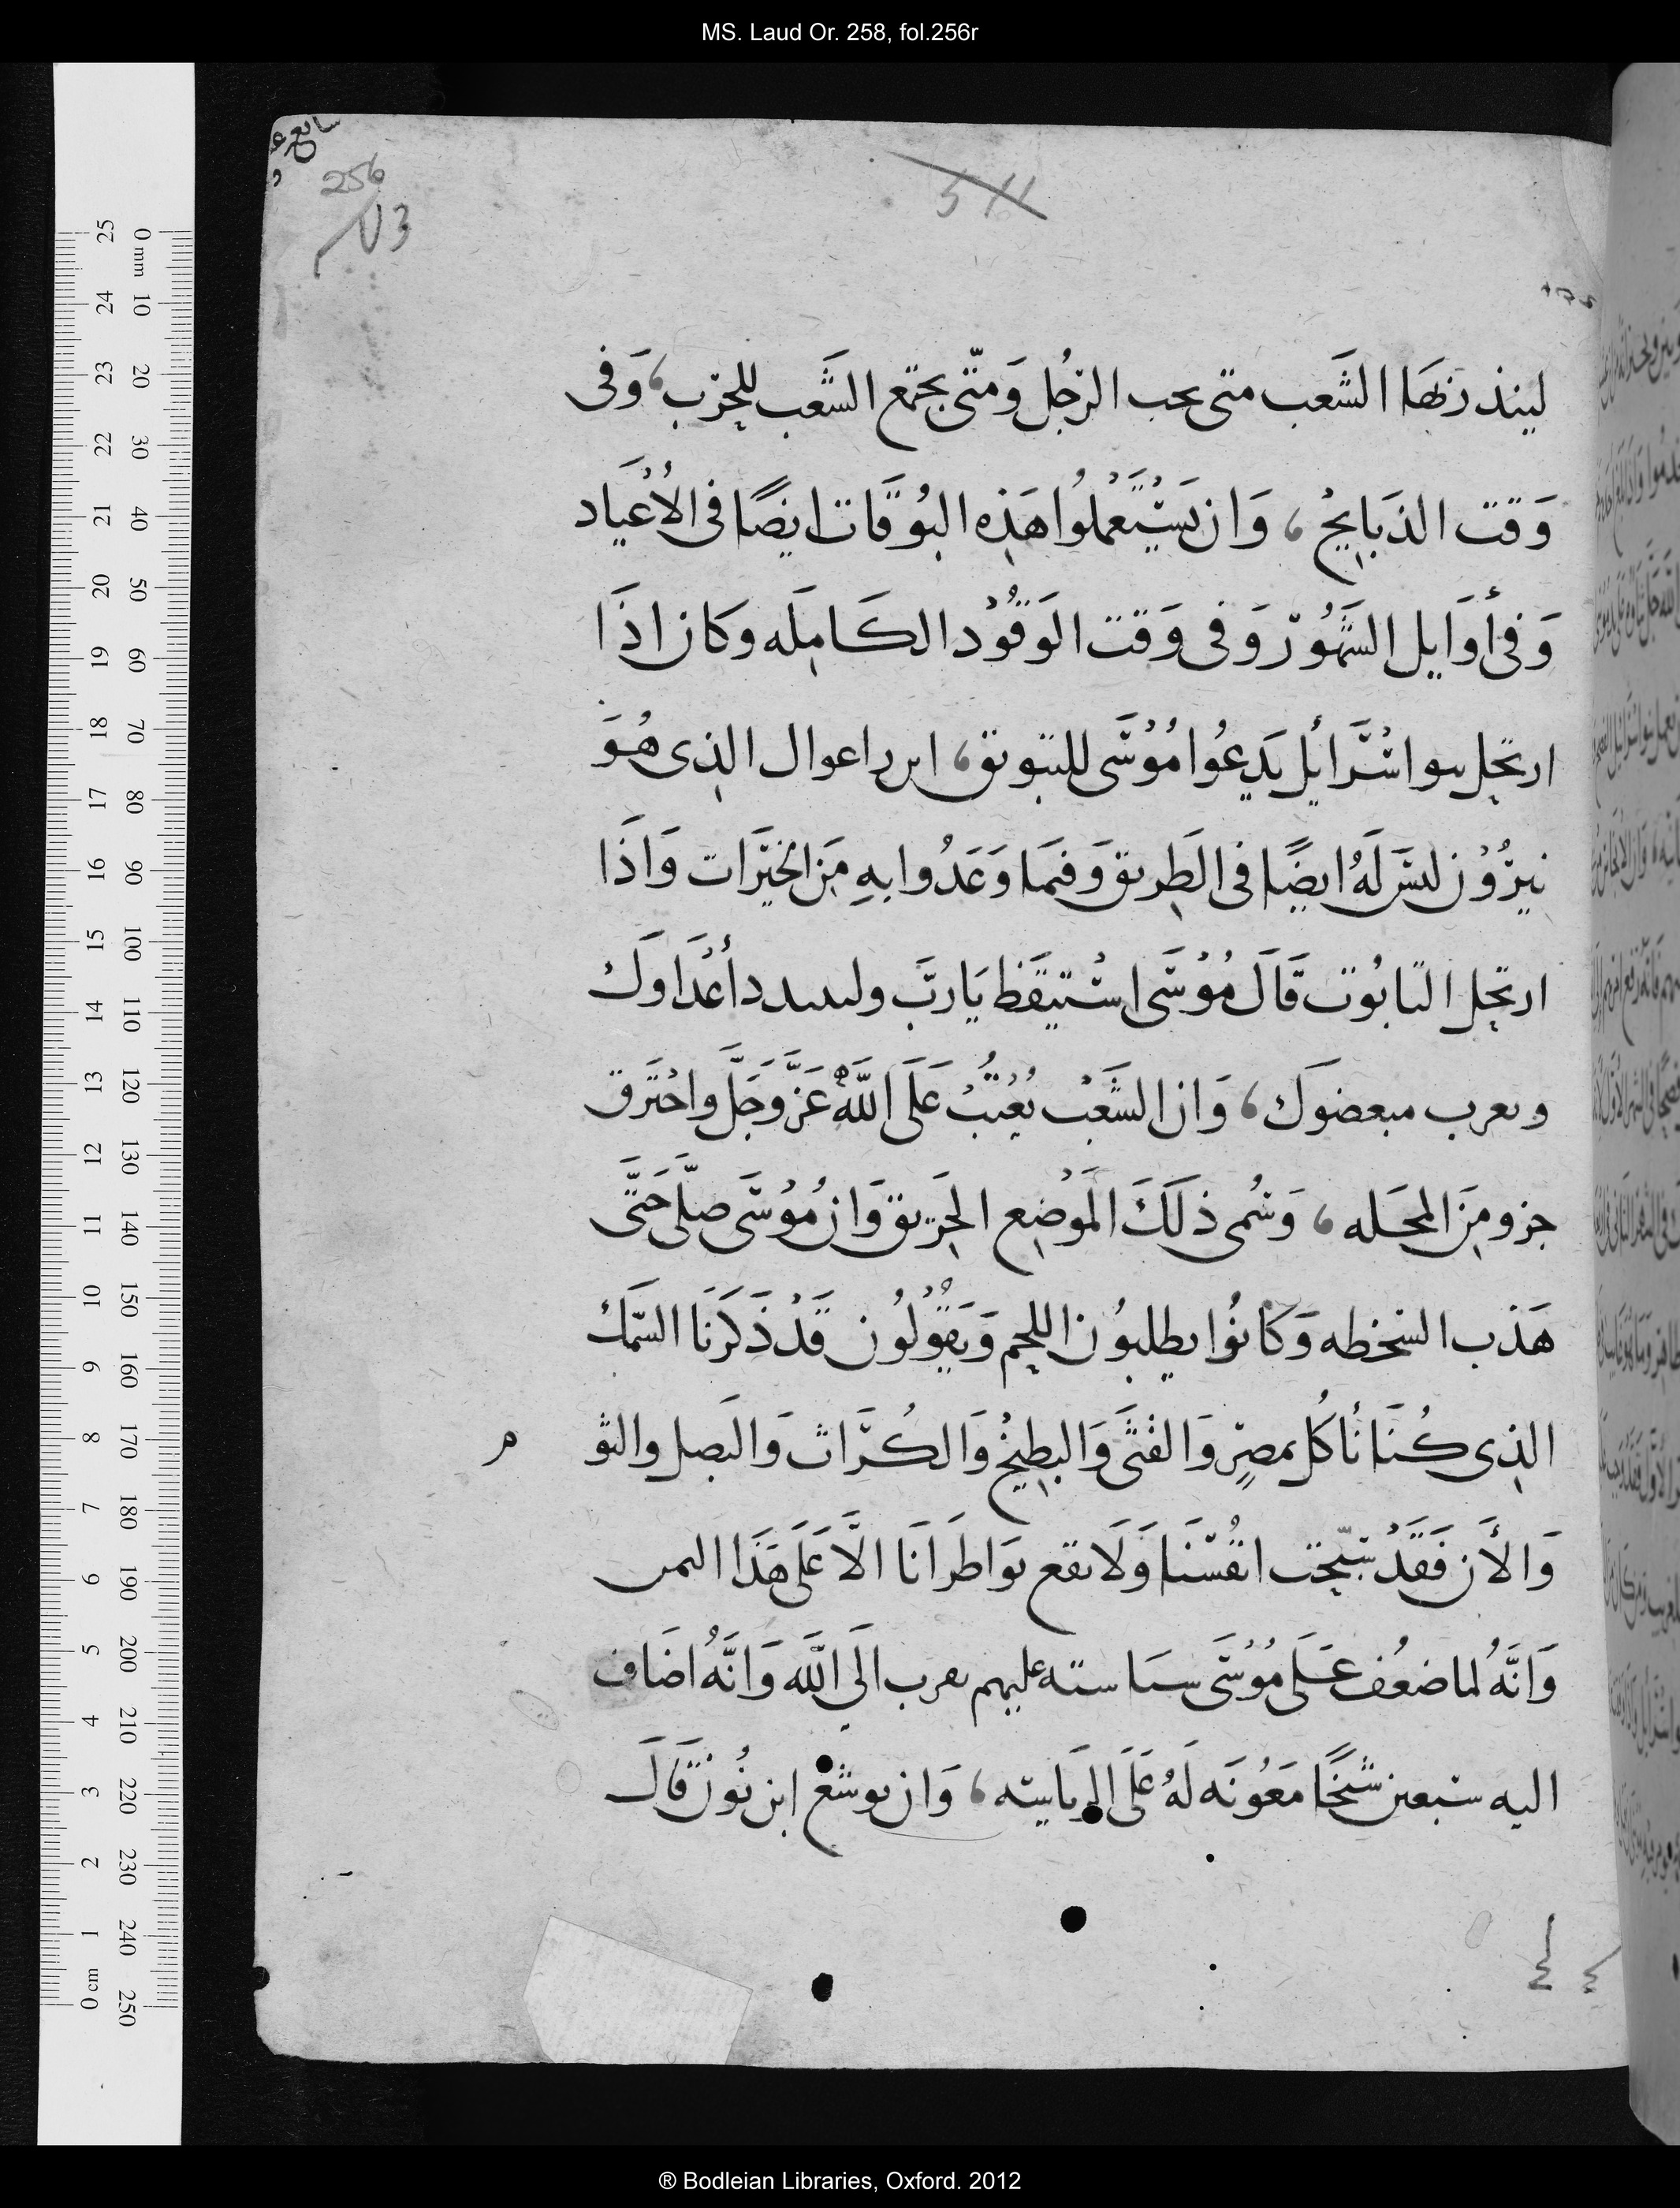 MS. Laud Or. 258, fol.256r
256
لينذر بها الشَعب متى يجب الرّجُل وَمتّى يجتمع الشَعب للحَرب، وَفى
وَقت الذبَايحْ، وَان يَسْتَعمْلُوا هَذِه البُوقَات ايضًا فى الاعْيَاد
وَفى أوَايل الشَهُوْر وَفى وَقت الوَقُوْد الكَامِلَه وكَان اذَا
ارتحِل بنو اسْرَائِل يَدعُوا مُوْسَى للتبويق، ابن راعوال الذِى هُوَ
يثرُوْن ليسَر لَهُ ايضًا فى الطَرِيق وَفيمَا وَعَدُوا بهِ مَن الخيَرات وَاذَا
ارتحِل التابُوت قَالَ مُوْسَى اسْتيقَظ يَا ربَّ وليتبدد أعْدَاوَك
ويهرب مبغضوَك، وَان الشَعْب تعْتبْ عَلَى اللَّهْ عَزَّ وَجَلَّ واحْتَرق
جزو مِنَ المحَله، وَسُمى ذلَكَ المَوْضِع الحَرِيق وَان مُوْسَى صلَّى حَتَّى
هَذب السخطه وَكَانُوا يطلبُون اللحم وَيَقُوْلُون قَدْ ذَكَرنَا السَّمَك
الذِى كُنَا نأكُل بمصِر وَالقثَى وَالبِطيخْ وَالكُرَّاث وَالبَصل والثو
م
وَالأَن فَقَدْ شيّحت انفُسَنَا وَلَا يقع نوَاطرَانَا الَّا عَلَى هَذَا المن
وَانَّهُ لما ضعُف عَلَى مُوْسَى سيَاسته عليهم هرب الَى اللَّه وَانَّهُ اضَاف
اليه سَبعين شَيخًا مَعُونَه لَهُ عَلَى الرَياسَه، وَان يوشعْ ابن نُون قَالَ
® Bodleian Libraries, Oxford. 2012